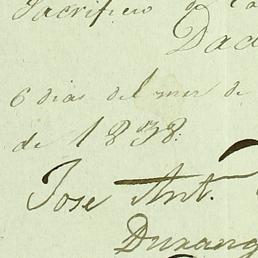 Sacrificio de
Dad
6 dias del mes de
de 1838.
Jose Ant.
Durang